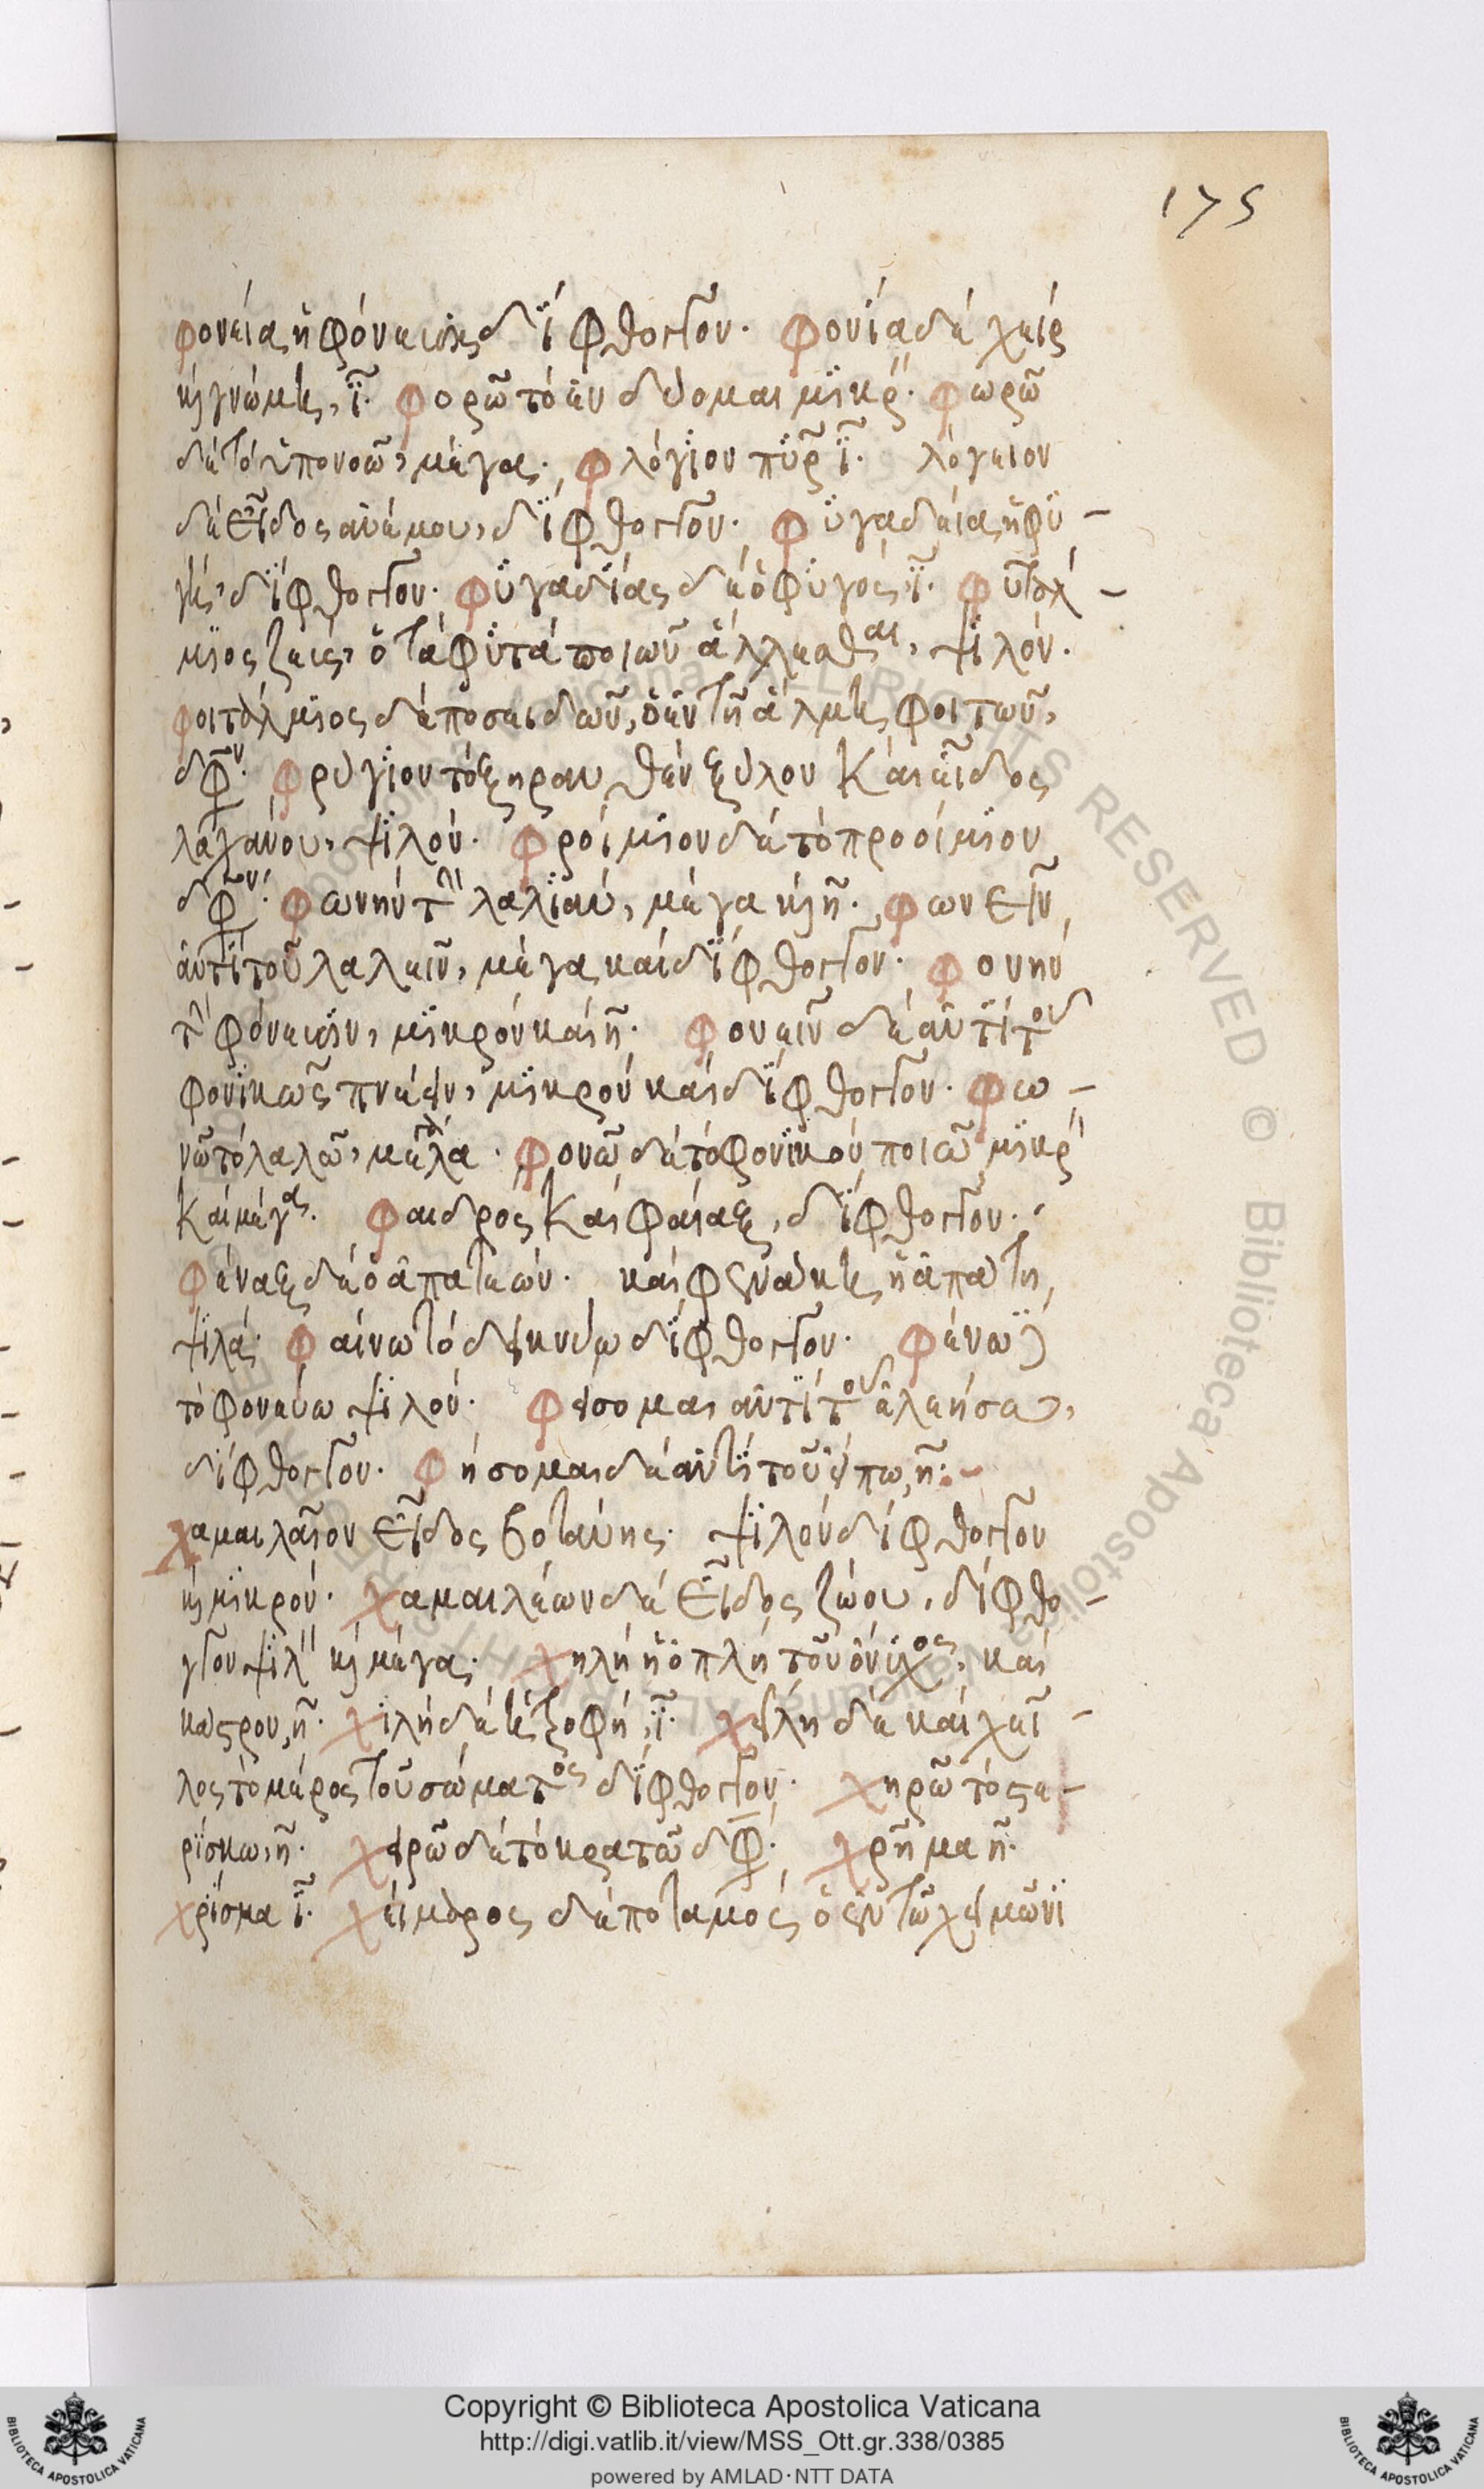 175
φονεία ἡ φόνευσις δίφθογγον. φονία δὲ χεὶρ
καὶ γνώμη, ϊ. φορῶ τὸ ἐνδύομαι μικρ. φωρῶ
δὲ τὸ ὑπονοῶ, μέγα. φλόγιον πῦρ ϊ. λόγειον
δὲ εἶδος ἀνέμου, δίφθογγον. φυγαδεία ἡ φυ-
γή, δίφθογγον. φυγαδίας δὲ ὁ φυγὸς ϊ. φυταλ-
μιος ζεὺς, ὁ τὰ φυτὰ ποιῶν ἄλλεσθαι, ψιλόν.
φοιτάλμιος δὲ ποσειδῶν, ὁ ἐν τῇ ἅλμῃ φοιτῶν,
δφον. φρύγιον τὸ ξηρανθὲν ξύλον καὶ εἶδος
λαχάνου, ψιλόν. φροίμιον δὲ τὸ προοίμιον
δφον. φωνὴν τὴν λαλιὰν, μέγα καὶ η. φωνεῖν
ἀντὶ τοῦ λαλεῖν, μέγα καὶ δίφθογγον. φονὴν
τὴν φόνευσιν, μικρὸν καὶ η. φονεῖν δὲ ἀντὶ τοῦ
φονικῶς πνέειν, μικρὸν καὶ δίφθογγον. φω-
νῶ τὸ λαλῶ, μεγάλα. φονῶ δὲ τὸ φονικὸν ποιῶ μικρ
καὶ μέγα. φαιδρὸς καὶ φαίαξ, δίφθογγον.
φέναξ δὲ ὁ ἀπατεών. καὶ φενάκη ἡ ἀπάτη
ψιλά. φαίνω τὸ δεικνύω δίφθογγον. φένω
τὸ φονεύω ψιλόν. φείσομαι ἀντὶ τοῦ ἐλεήσω,
δίφθογγον. φήσομαι δὲ ἀντὶ τοῦ εἴπω, η.
χαμαιλαῖον εἶδος βοτάνης. ψιλὸν δίφθογγον
καὶ μικρόν. χαμαιλέων δὲ εἶδος ζώου, δίφθο-
γγον ψιλ καὶ μέγα. χηλὴ ἡ ὁπλὴ τοῦ ὄνυχος, καὶ
κάστρου, η. χιλὴ δὲ ἡ τροφή, ϊ. χείλη δὲ καὶ χεῖ-
λος τὸ μέρος τοῦ σώματος δίφθογγον. χηρῶ τὸ στε-
ρίσκω, η. χειρῶ δὲ τὸ κρατῶ δφ. χρῆμα η.
χρίσμα ϊ. χείμαρος δὲ ποταμὸς ὁ ἐν τῷ χειμῶνι
Copyright © Biblioteca Apostolica Vaticana
http://digi.vatlib.it/view/MSS_Ott.gr.338/0385
powered by AMLAD·NTT DATA